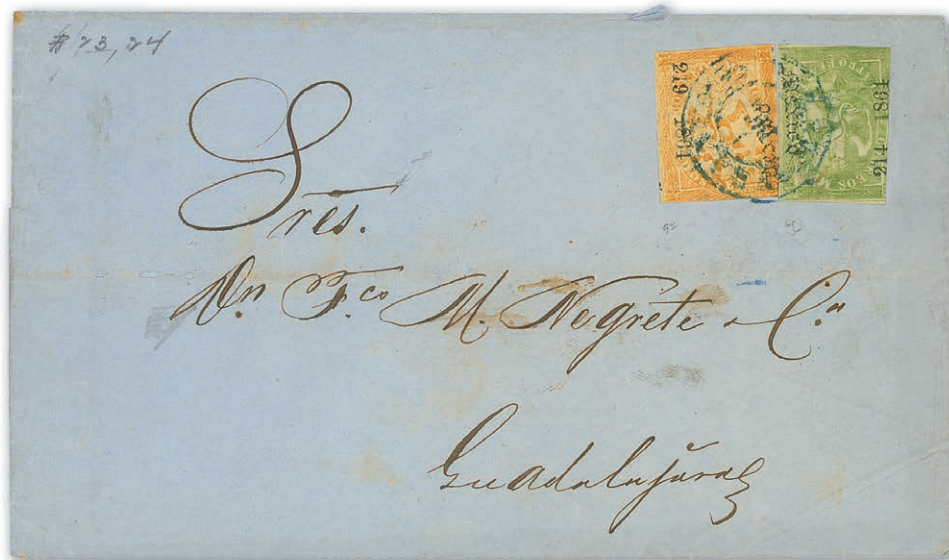 # 23, 24
219 1864
214 1864
Sres.
Dn Fco M. Negrete & Ca
Guadalajara